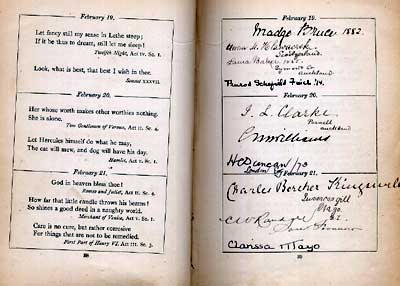 February 19.
Let fancy still my sense in Lethe steep;
If it be thus to dream, still let me sleep!
Twelfth Night, Act IV. Sc. 1.
Look, what is best, that best I wish in thee.
Sonnet XXXVII.
February 20.
Her whose worth makes other worthies nothing.
She is alone.
Two Gentlemen of Verona, Act II. Sc. 4.
Let Hercules himself do what he may,
The cat will mew, and dog will have his day.
Hamlet, Act V. Sc. 1.
February 21.
God in heaven bless thee!
Romeo and Juliet, Act II. Sc. 4.
How far that little candle throws his beams!
So shines a good deed in a naughty world.
Merchant of Venice, Act V. Sc. 1.
Care is no cure, but rather corrosive
For things that are not to be remedied.
First Part of Henry VI. Act III. Sc. 3.
February 19.
Madge Bruce 1882.
Switzerland.
Laura Baker
Auckland
February 20.
J. L. Clarke
Parnell
Auckland
Williams
H Duncan
London
February 21.
Charles Kingswell
Invercargill
Otago
N.Z.
Clarissa Mayo